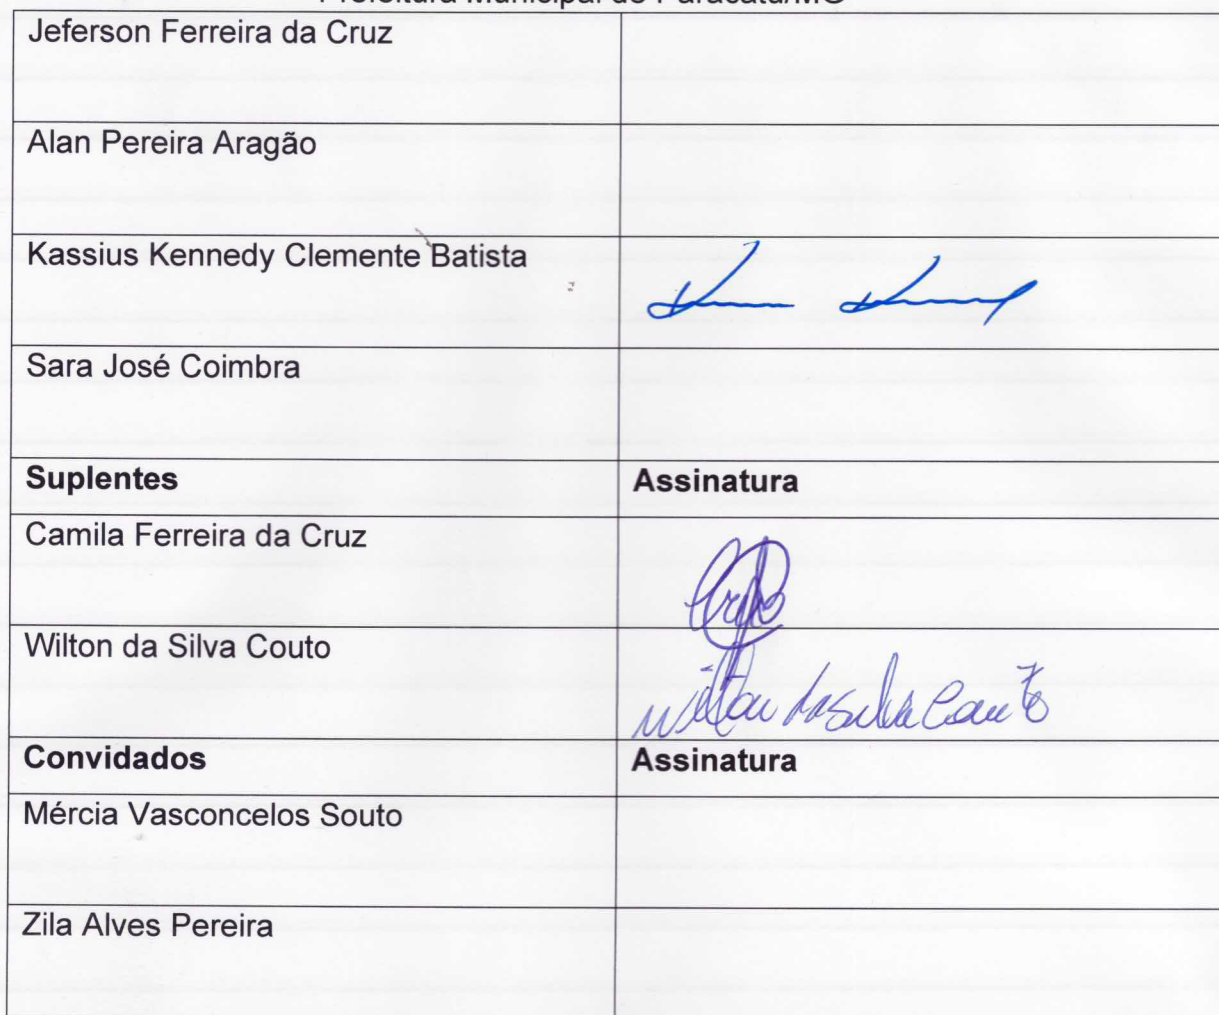 Prefeitura Municipal de Paracatu/MG
Jeferson Ferreira da Cruz
Alan Pereira Aragão
Kassius Kennedy Clemente Batista
Sara José Coimbra
Suplentes Assinatura
Camila Ferreira da Cruz
Wilton da Silva Couto Wilton da Silva Couto
Convidados Assinatura
Mércia Vasconcelos Souto
Zila Alves Pereira